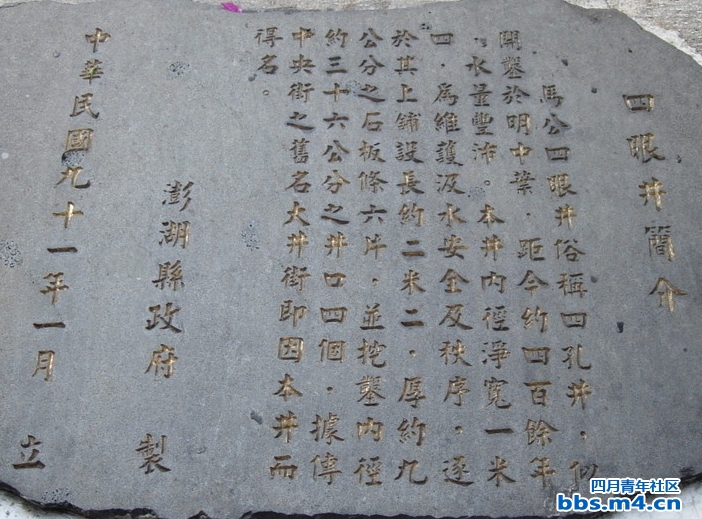 四眼井簡介
馬公四眼井俗稱四孔井，仞
開鑿於明中葉．距今約四百餘年
．水量豐沛。本井內徑淨寬一米
四．為維護汲水安全及秩序，遂
於其上鋪設長約二米二．厚約九
公分之石板條六片．並挖鑿內徑
約三十六公分之井口四個．據傳
中央街之舊名大井街即因本井而
得名。
澎湖縣政府 製
中華民國九十一年一月 立
四月青年社区
bbs.m4.cn